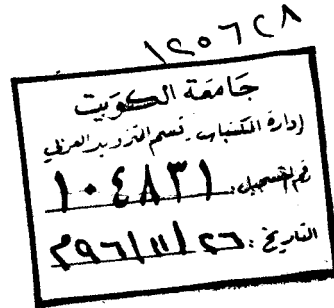 ١٢٥٦٢٨
جَامعَة الكوَيت
إدارة المكتبات - قسم التزويد العربي
رقم التسجيل: ١٠٤٨٣١
التاريخ: ٢٦/١١/٩٦م